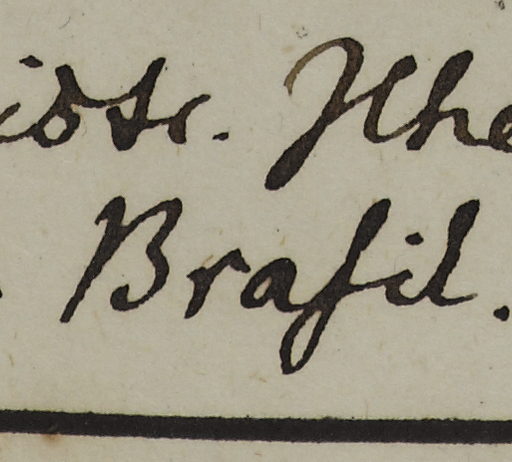 istr. Ilhe
Braſil.